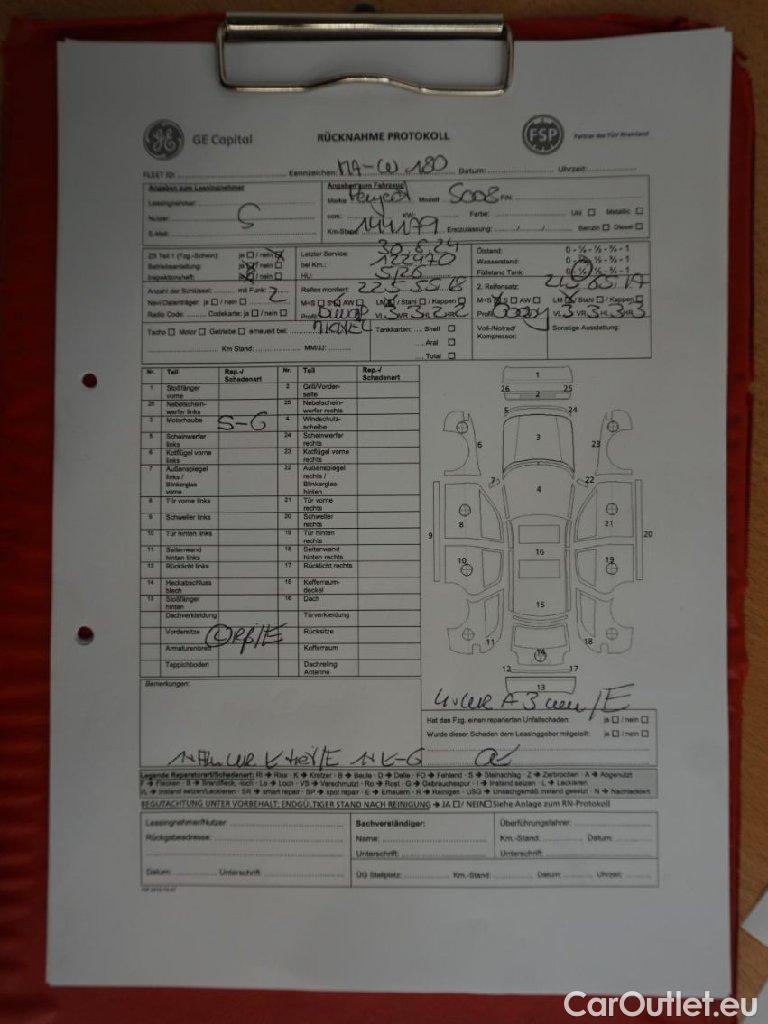 GE Capital RÜCKNAHME PROTOKOLL FSP Partner des TÜV Rheinland
FLEET ID: Kennzeichen: MA-CW 180 Datum: Uhrzeit:
Angaben zum Leasingnehmer
Leasingnehmer:
Nutzer: S
E-Mail:
Angaben zum Fahrzeug
Marke Peugeot Modell 5008 FIN:
KW: Farbe: Uni Metallic
Km-Stand 144179 Erstzulassung: / / Benzin Diesel
ZB Teil 1 (Fzg.-Schein): ja / nein
Betriebsanleitung: ja / nein
Inspektionsheft: ja / nein
Letzter Service 30.8.24
bei Km.: 122970
HU: 5/26
Ölstand: 0 - ¼ - ½ - ¾ - 1
Wasserstand: 0 - ¼ - ½ - ¾ - 1
Füllstand Tank 0 - ¼ - ½ - ¾ - 1
Anzahl der Schlüssel: mit Funk: 2
Navi Datenträger: ja / nein
Radio Code: Codekarte: ja / nein
Reifen montiert: 225 55 18
M+S S AW LM / Stahl / Kappen
Profil VL 3 VR 3 HL 2 HR 2
2. Reifensatz: 215 65 17
M+S S AW LM / Stahl / Kappen
Profil VL 3 VR 3 HL 3 HR 3
Tacho Motor Getriebe erneuert bei:
Km Stand: MM/JJ:
Tankkarten: Shell
Aral
Total
Voll-/Notrad
Kompressor:
Sonstige Ausstattung:
Nr. Teil Rep.-/ Schadenart Nr. Teil Rep.-/ Schadenart
1 Stoßfänger vorne 2 Grill/Vorderseite
26 Nebelscheinwerfer links 25 Nebelscheinwerfer rechts
3 Motorhaube S-G 4 Windschutzscheibe
5 Scheinwerfer links 24 Scheinwerfer rechts
6 Kotflügel vorne links 23 Kotflügel vorne rechts
7 Außenspiegel links / Blinkerglas vorne 22 Außenspiegel rechts / Blinkerglas hinten
8 Tür vorne links 21 Tür vorne rechts
9 Schweller links 20 Schweller rechts
10 Tür hinten links 19 Tür hinten rechts
11 Seitenwand hinten links 18 Seitenwand hinten rechts
12 Rücklicht links 17 Rücklicht rechts
14 Heckabschlussblech 15 Kofferraumdeckel
13 Stoßfänger hinten 16 Dach
Dachverkleidung Türverkleidung
Vordersitze Rücksitze
Armaturenbrett Kofferraum
Teppichboden Dachreling Antenne
1
26 2 25
5 24
6 3 23
7 22
4
8 21
9 16 20
10 19
15
11 18
14
12 17
13
Bemerkungen:
Hat das Fzg. einen reparierten Unfallschaden: ja / nein
Wurde dieser Schaden dem Leasinggeber mitgeteilt: ja / nein
Legende Reparaturart/Schadenart: RI → Riss · K → Kratzer · B → Beule · D → Delle · FD → Fehlend · S → Steinschlag · Z → Zerbrochen · A → Abgenutzt
F → Flecken · B → Brandfleck, -loch · Lo → Loch · VS → Verschmutzt · Ro → Rost · G → Gebrauchsspur · I → Instand setzen · L → Lackieren
I/L → Instand setzen/Lackieren · SR → smart repair · SP → spot repair · E → Erneuern · R → Reinigen · USG → Unsachgemäß instand gesetzt · N → Nachlackieren
BEGUTACHTUNG UNTER VORBEHALT: ENDGÜLTIGER STAND NACH REINIGUNG → JA / NEIN Siehe Anlage zum RN-Protokoll
Leasingnehmer/Nutzer:
Rückgabeadresse:
Datum: Unterschrift:
Sachverständiger:
Name:
Unterschrift:
Überführungsfahrer:
Km.-Stand: Datum:
Unterschrift:
ÜG Stellplatz: Km.-Stand: Datum: Uhrzeit:
CarOutlet.eu